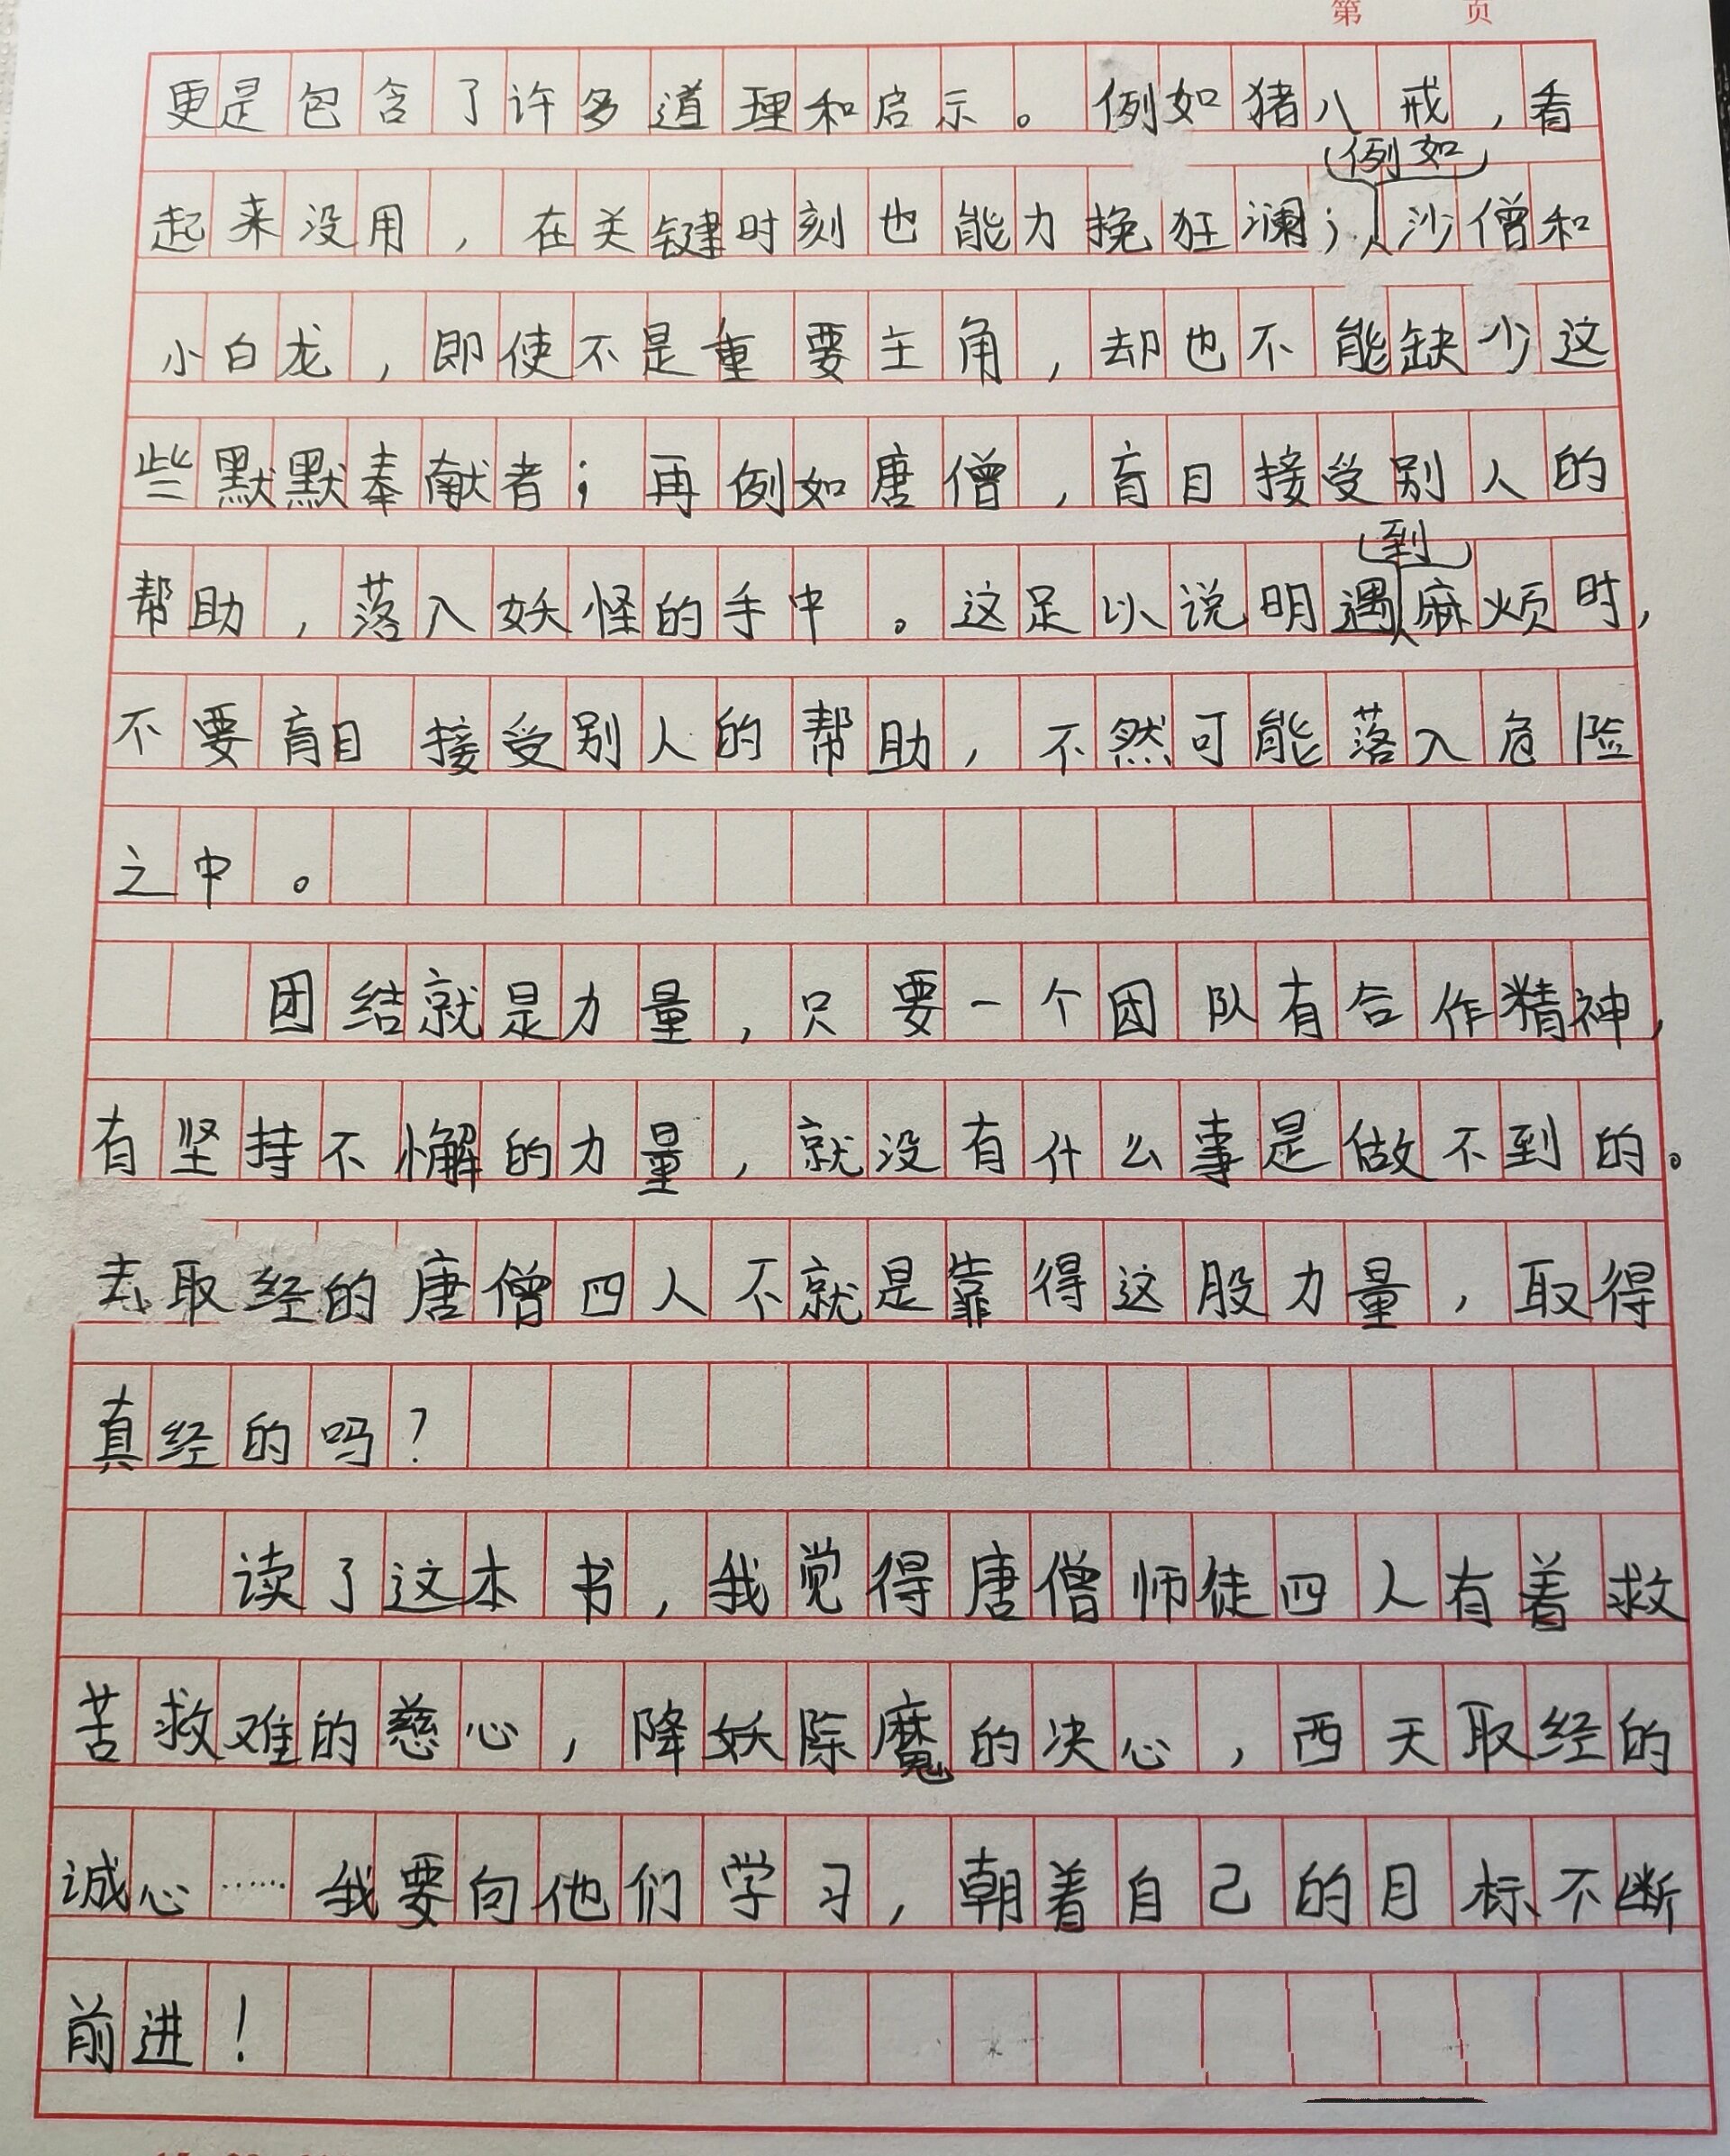 第 页
更是包含了许多道理和启示。例如猪八戒,看
(例如)
起来没用,在关键时刻也能力挽狂澜;沙僧和
小白龙,即使不是重要主角,却也不能缺少这
些默默奉献者;再例如唐僧,盲目接受别人的
(到)
帮助,落入妖怪的手中。这足以说明遇麻烦时,
不要盲目接受别人的帮助,不然可能落入危险
之中。
团结就是力量,只要一个团队有合作精神,
有坚持不懈的力量,就没有什么事是做不到的。
去取经的唐僧四人不就是靠得这股力量,取得
真经的吗?
读了这本书,我觉得唐僧师徒四人有着救
苦救难的慈心,降妖除魔的决心,西天取经的
诚心……我要向他们学习,朝着自己的目标不断
前进!